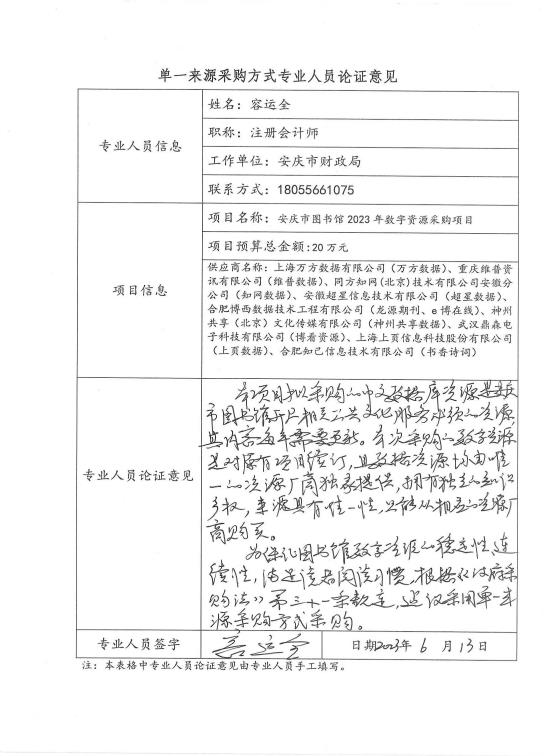 单一来源采购方式专业人员论证意见
专业人员信息
姓名：容运全
职称：注册会计师
工作单位：安庆市财政局
联系方式：18055661075
项目信息
项目名称：安庆市图书馆2023年数字资源采购项目
项目预算总金额:20万元
供应商名称：上海万方数据有限公司（万方数据）、重庆维普资
讯有限公司（维普数据）、同方知网(北京)技术有限公司安徽分
公司（知网数据）、安徽超星信息技术有限公司（超星数据）、
合肥博西数据技术工程有限公司（龙源期刊、e博在线）、神州
共享（北京）文化传媒有限公司（神州共享数据）、武汉鼎森电
子科技有限公司（博看资源）、上海上页信息科技股份有限公司
（上页数据）、合肥知己信息技术有限公司（书香诗词）
专业人员论证意见
本项目拟采购的中文数据库资源是我
市图书馆开展相关公共文化服务必须的资源
其内容每年需要更新。本次采购的数字资源
是对原有项目续订，且数据资源均由唯
一的资源厂商独家提供，拥有独立的知识
产权，来源具有唯一性，只能从相应的资源厂
商购买。
为保证图书馆数字资源的稳定性、连
续性，满足读者阅读习惯，根据《政府采
购法》第三十一条规定，建议采用单一来
源采购方式采购。
专业人员签字
容运全
日期2023年 6 月 13日
注：本表格中专业人员论证意见由专业人员手工填写。